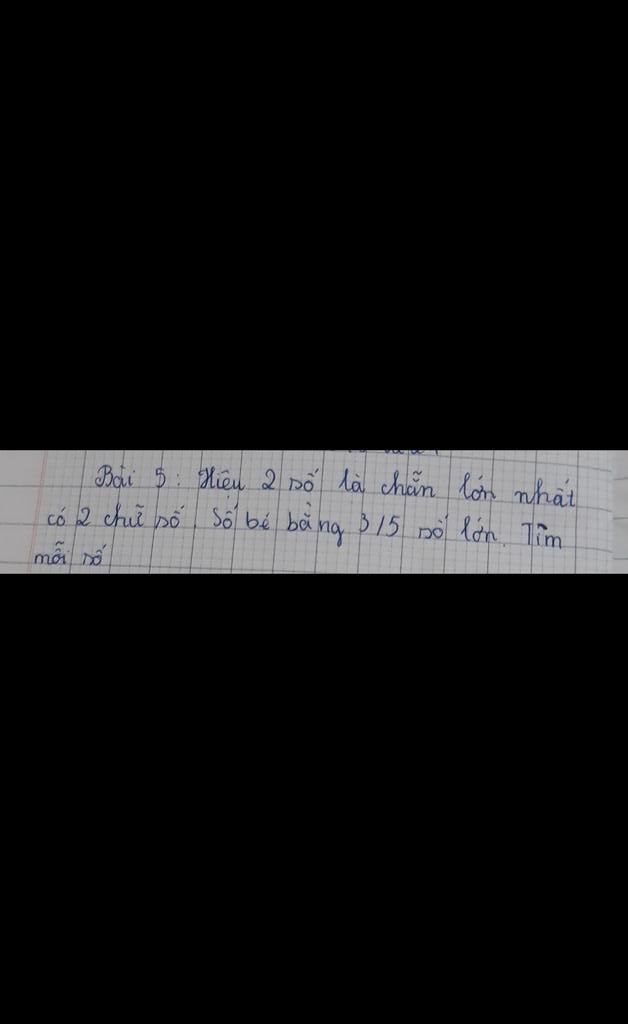 Bài 5: Hiệu 2 số là chẵn lớn nhất
có 2 chữ số. Số bé bằng 3/5 số lớn. Tìm
mỗi số